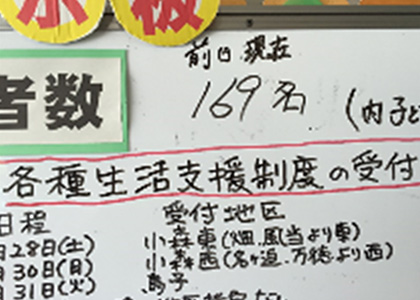 示板
前日現在
者数 169名 (内子ど
各種生活支援制度の受付
日程 受付地区
月28日(土) 小森東(畑.風当より東)
月30日(日) 小森西(名ヶ迫.万徳より西)
月31日(火) 鳥子